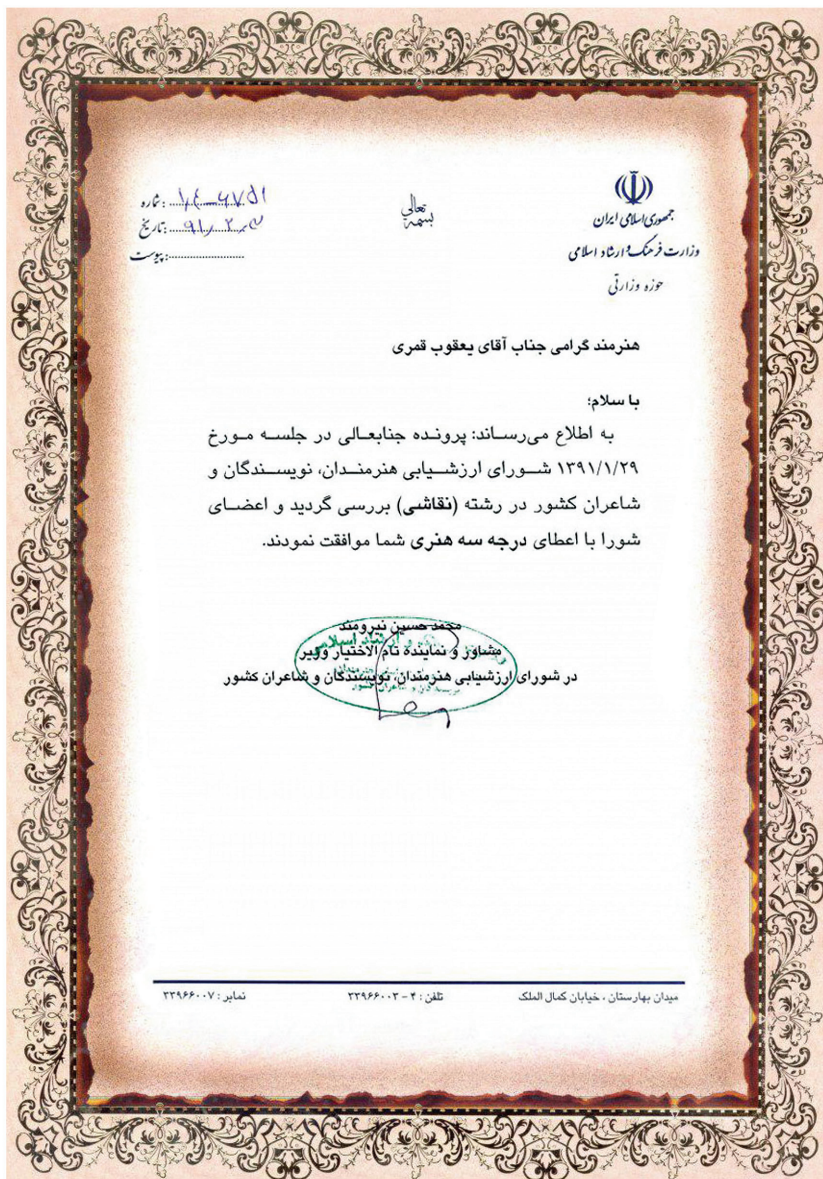 بسمه تعالی
جمهوری اسلامی ایران
وزارت فرهنگ و ارشاد اسلامی
حوزه وزارتی
شماره:
تاریخ: ۹۱/۲/۳
پیوست:
هنرمند گرامی جناب آقای یعقوب قمری
با سلام؛
به اطلاع می‌رساند: پرونده جنابعالی در جلسه مورخ
۱۳۹۱/۱/۲۹ شورای ارزشیابی هنرمندان، نویسندگان و
شاعران کشور در رشته (نقاشی) بررسی گردید و اعضای
شورا با اعطای درجه سه هنری شما موافقت نمودند.
محمد حسین نیرومند
مشاور و نماینده تام الاختیار وزیر
در شورای ارزشیابی هنرمندان، نویسندگان و شاعران کشور
میدان بهارستان ، خیابان کمال الملک
تلفن : ۴ - ۳۳۹۶۶۰۰۳
نمابر : ۳۳۹۶۶۰۰۷